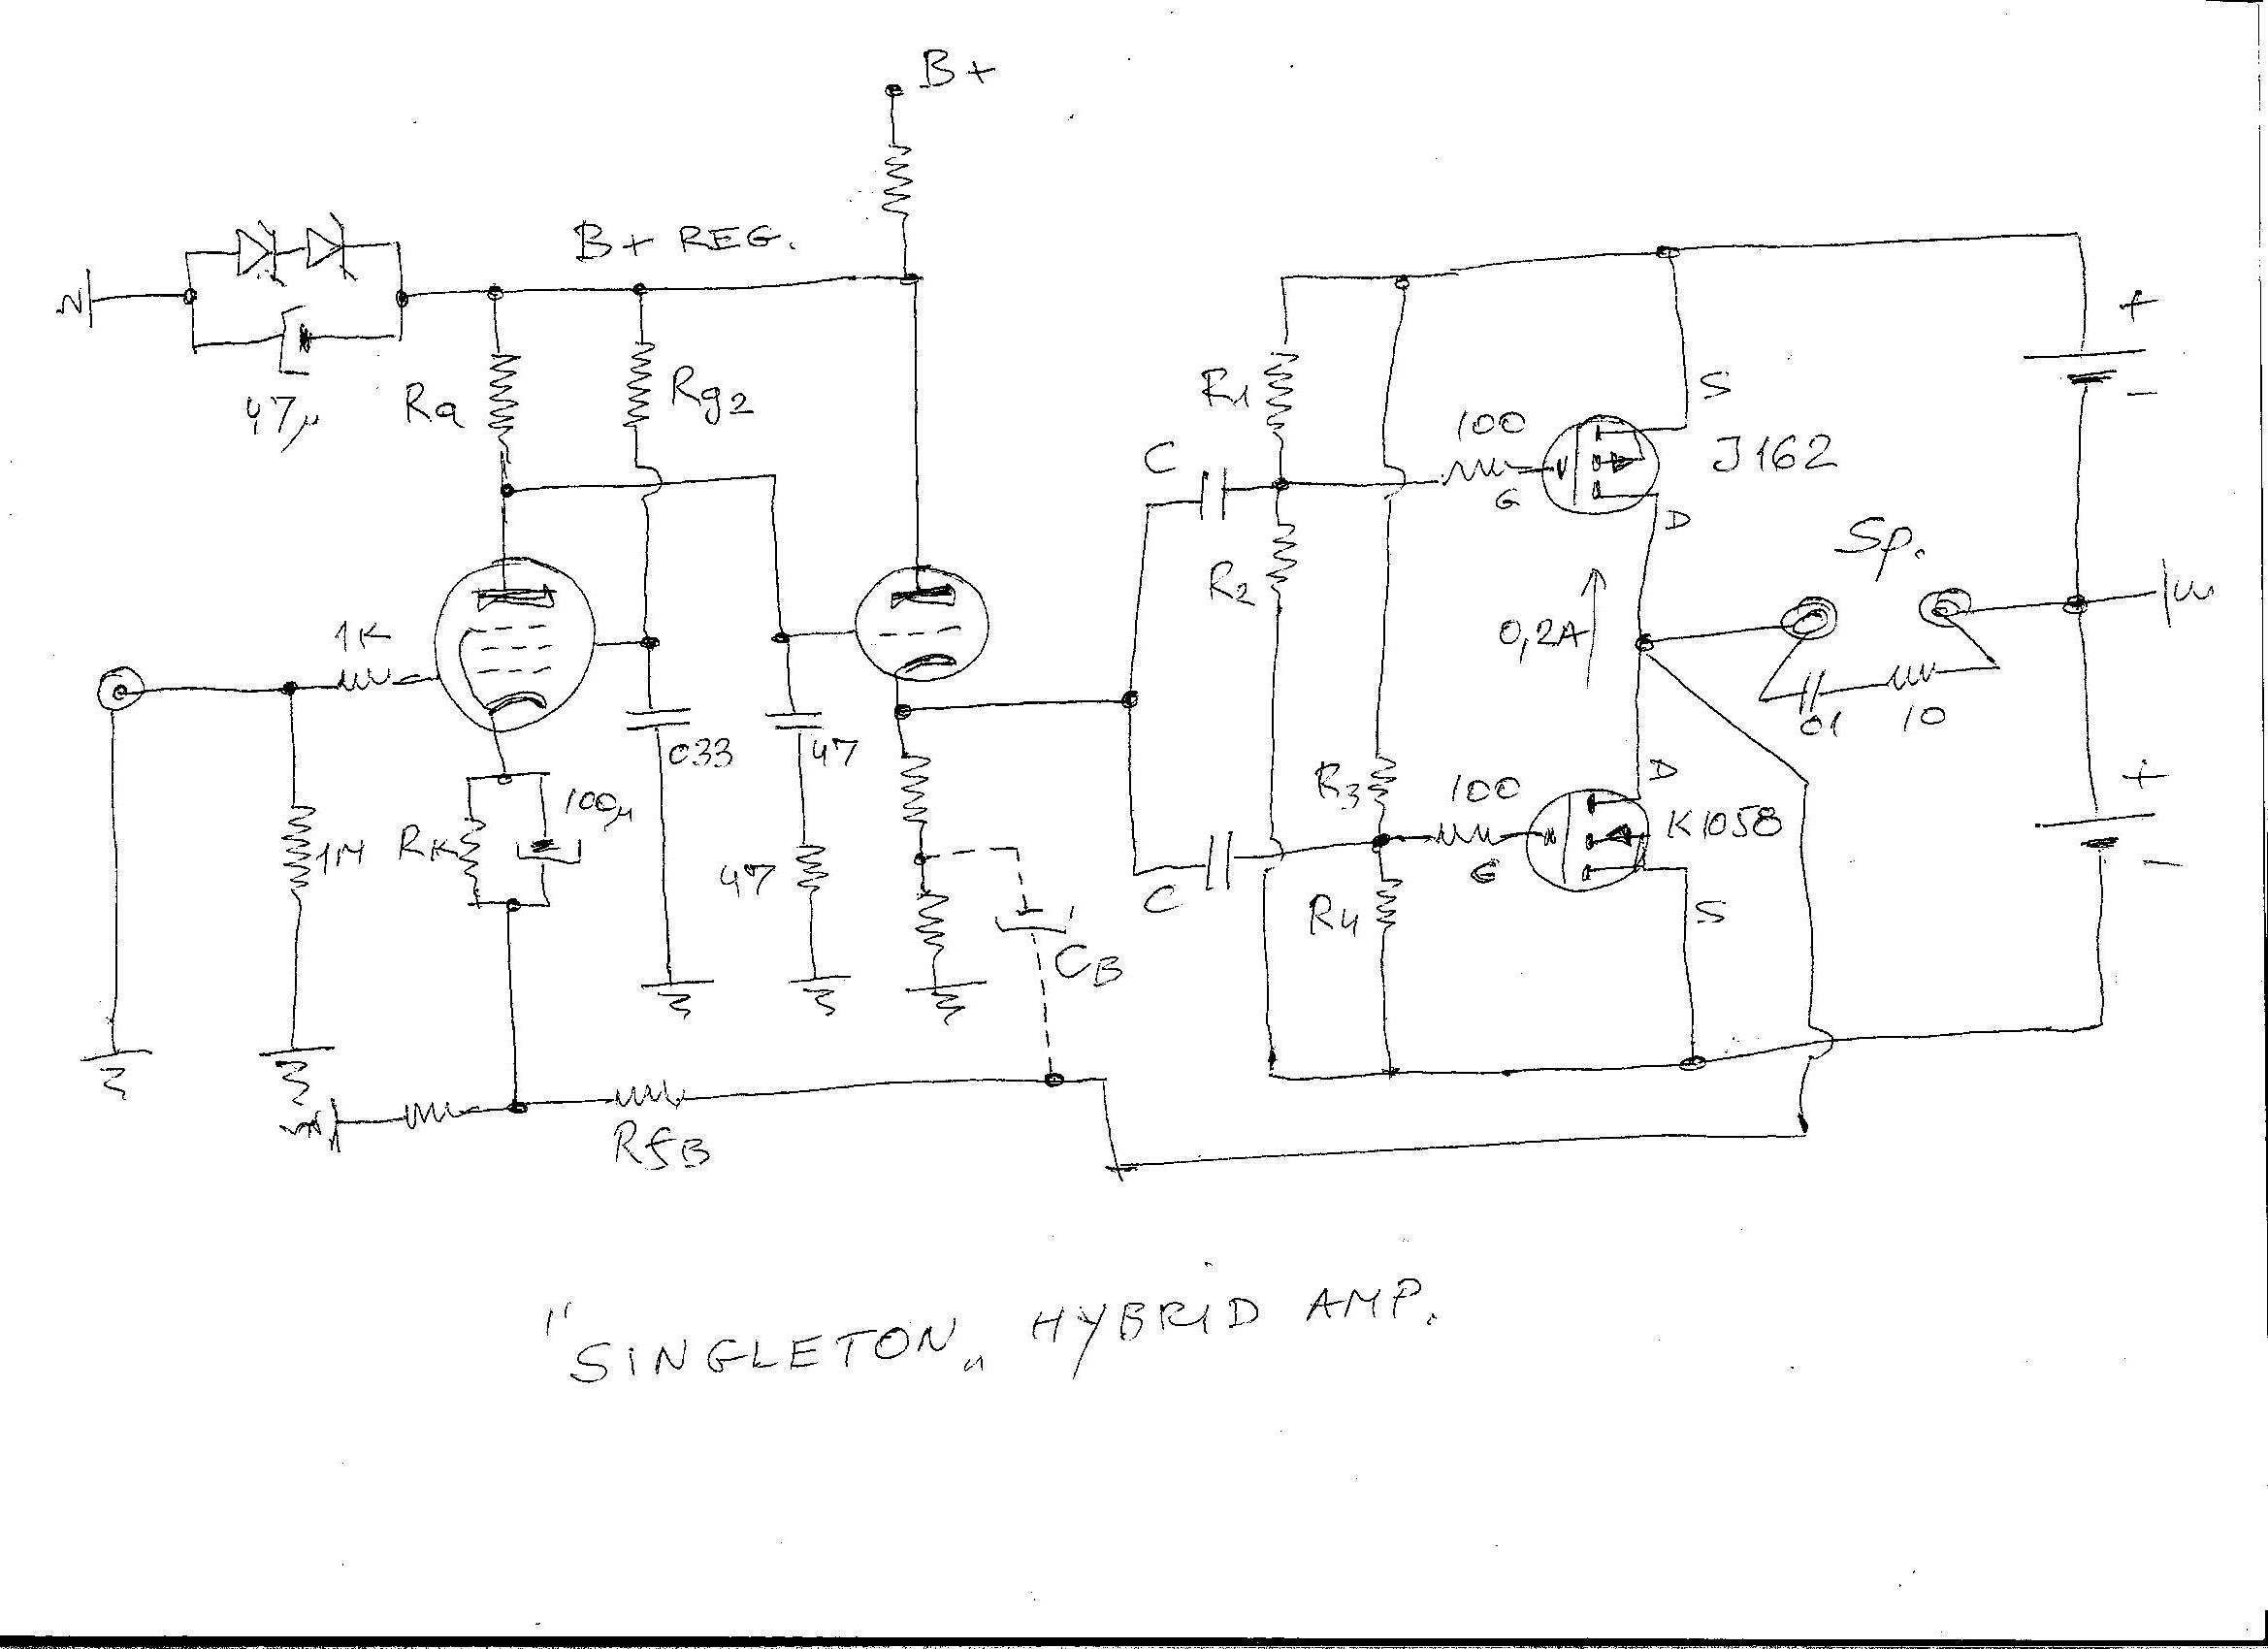 B+
B+ REG.
47µ
Ra
Rg2
1K
1M
RK
100µ
033
47
47
CB
RfB
C
C
R1
R2
R3
R4
100
G
100
G
S
J162
D
0,2A
Sp.
01
10
D
K1058
S
+
-
+
-
"SINGLETON„ HYBRID AMP.